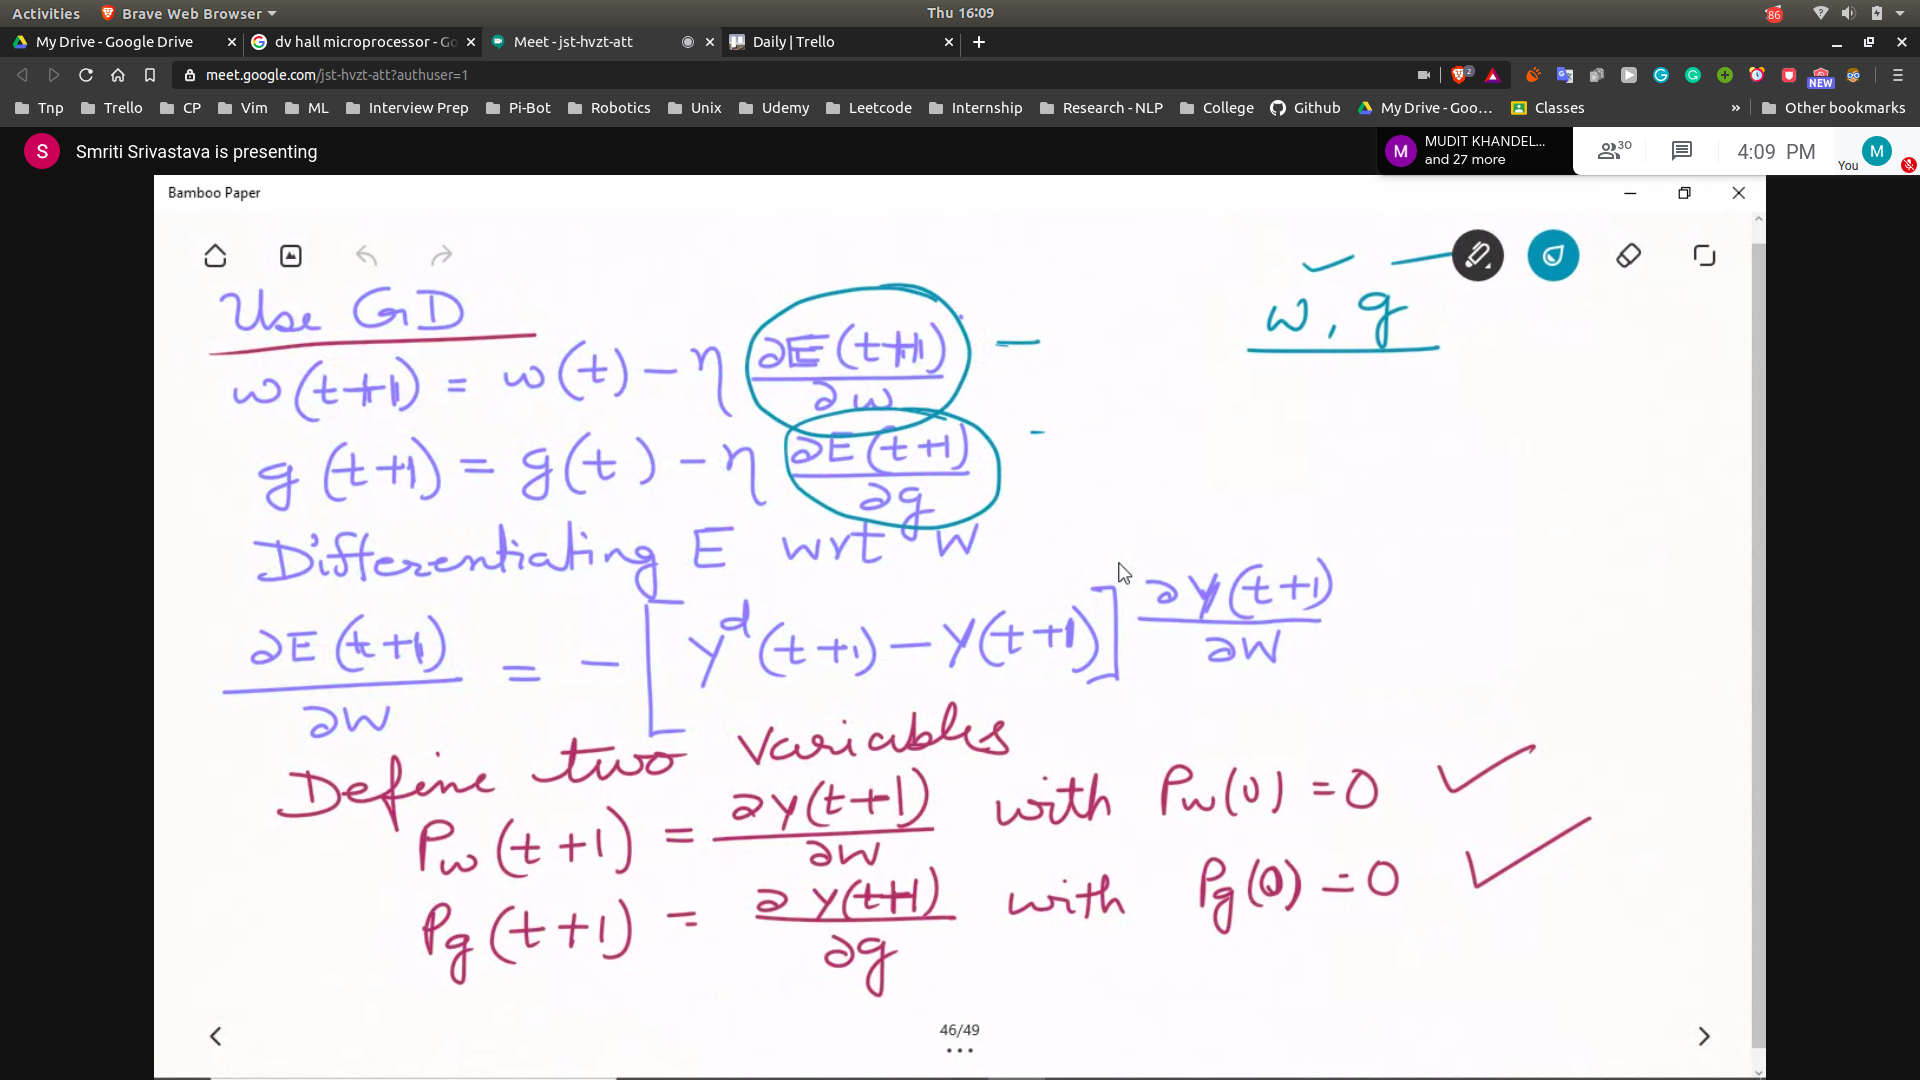 Activities Brave Web Browser Thu 16:09 86
My Drive - Google Drive dv hall microprocessor - Go Meet - jst-hvzt-att Daily | Trello
meet.google.com/jst-hvzt-att?authuser=1 2 NEW
Tnp Trello CP Vim ML Interview Prep Pi-Bot Robotics Unix Udemy Leetcode Internship Research - NLP College Github My Drive - Goo... Classes » Other bookmarks
S Smriti Srivastava is presenting M MUDIT KHANDEL... and 27 more 30 4:09 PM You M
Bamboo Paper
w, g
Use GD
w(t+1) = w(t) - η ∂E(t+1)/∂w
g(t+1) = g(t) - η ∂E(t+1)/∂g
Differentiating E wrt W
∂E(t+1)/∂W = - [y^d(t+1) - y(t+1)] ∂y(t+1)/∂W
Define two variables
Pw(t+1) = ∂y(t+1)/∂W with Pw(0) = 0
Pg(t+1) = ∂y(t+1)/∂g with Pg(0) = 0
46/49